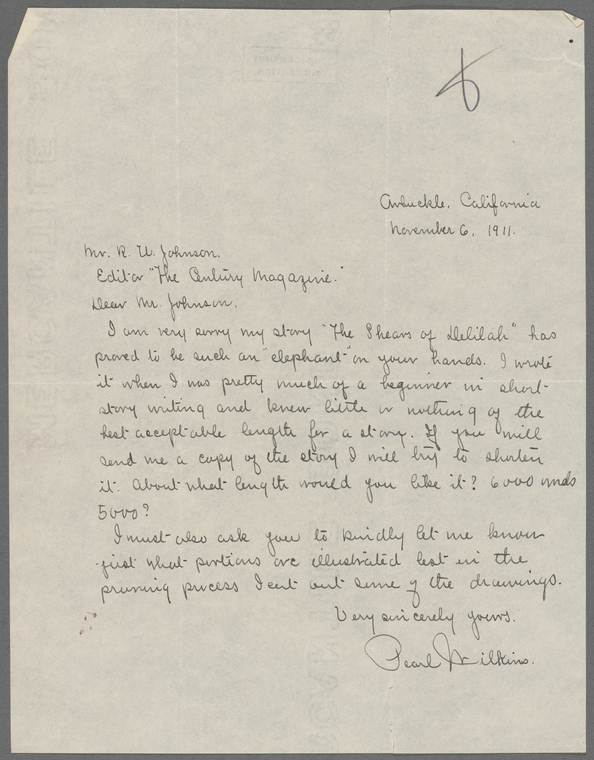 Arbuckle, California
November 6, 1911.
Mr. R. U. Johnson.
Editor "The Century Magazine."
Dear Mr. Johnson,
I am very sorry my story "The Shears of Delilah" has
proved to be such an "elephant" on your hands. I wrote
it when I was pretty much of a beginner in short-
story writing and knew little or nothing of the
best acceptable length for a story. If you will
send me a copy of the story I will try to shorten
it. About what length would you like it? 6000 words
5000?
I must also ask you to kindly let me know
just what portions are illustrated lest in the
pruning process I cut out some of the drawings.
Very sincerely yours.
Pearl Wilkins.